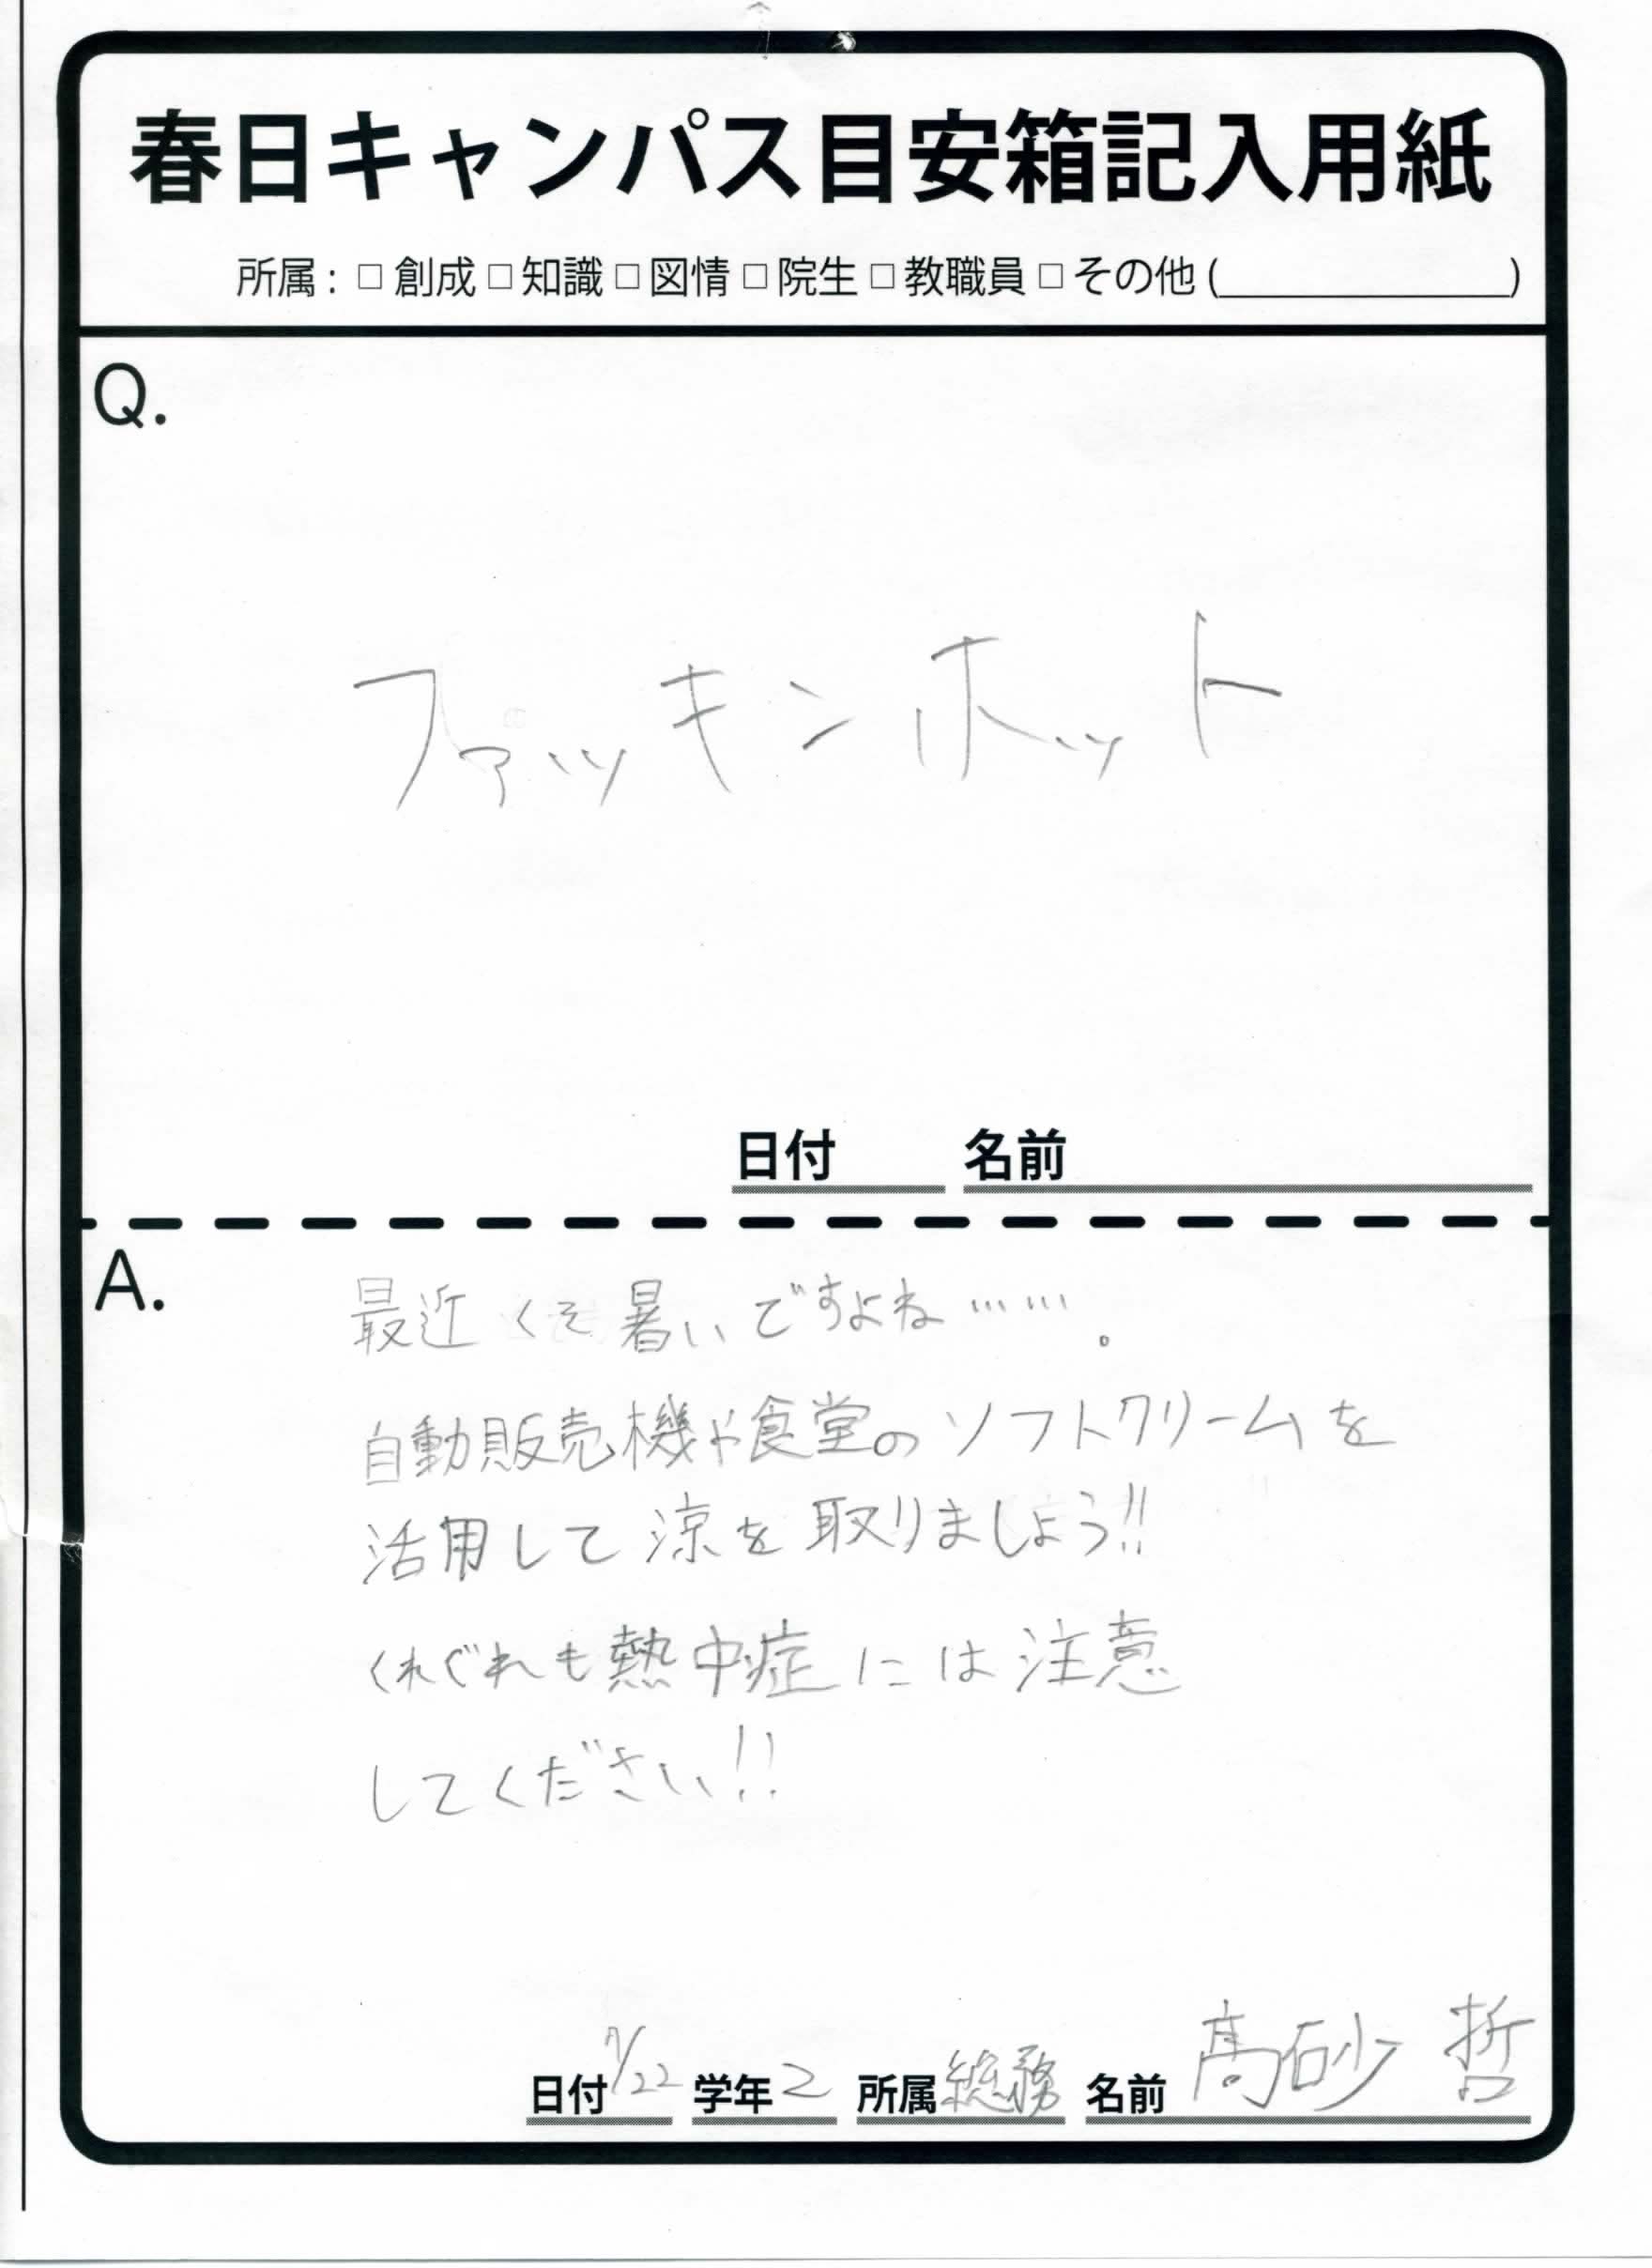 春日キャンパス目安箱記入用紙
所属：□ 創成 □ 知識 □ 図情 □ 院生 □ 教職員 □ その他 (　　　　　　)
Q.
ファッキンホット
日付　　名前
A.
最近くそ暑いですよね……。
自動販売機や食堂のソフトクリームを
活用して涼を取りましょう!!
くれぐれも熱中症には注意
してください!!
日付 7/22 学年 2 所属 総務 名前 髙砂 哲